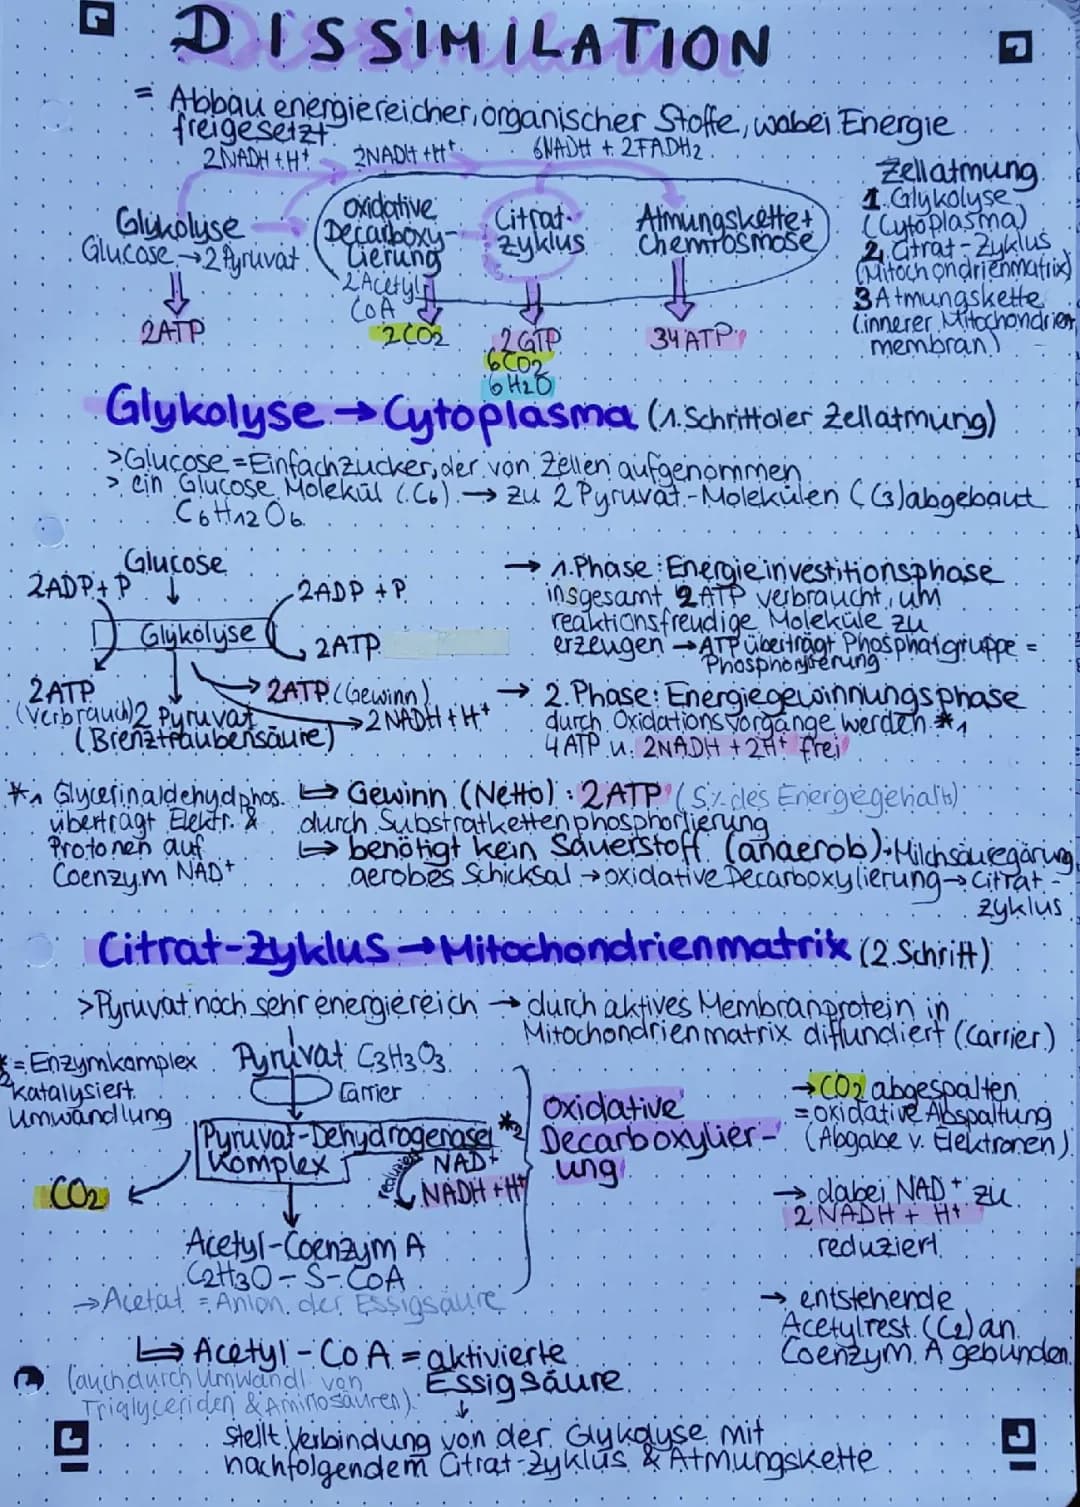 DISSIMILATION
= Abbau energiereicher, organischer Stoffe, wobei Energie
freigesetzt
2NADH + H⁺
2NADH + H⁺
6NADH + 2FADH2
Glykolyse
Glucose → 2 Pyruvat
2ATP
oxidative
Decarboxy-
lierung
2 Acetyl
CoA
2CO2
Citrat-
zyklus
2GTP
6CO2
6H2O
Atmungskette +
Chemiosmose
34 ATP
Zellatmung
1. Glykolyse
(Cytoplasma)
2. Citrat-Zyklus
(Mitochondrienmatrix)
3 Atmungskette
(innerer Mitochondrien
membran)
Glykolyse → Cytoplasma (1. Schritt der Zellatmung)
> Glucose = Einfachzucker, der von Zellen aufgenommen
> ein Glucose Molekül (C6) → zu 2 Pyruvat-Molekülen (C3) abgebaut
C6H12O6
Glucose
2ADP + P
2ADP + P
Glykolyse
2ATP
2ATP
(Verbrauch)
2ATP (Gewinn)
2 NADH + H⁺
2 Pyruvat
(Brenztraubensäure)
→ 1. Phase: Energieinvestitionsphase
insgesamt 2 ATP verbraucht, um
reaktionsfreudige Moleküle zu
erzeugen → ATP überträgt Phosphatgruppe =
Phosphorylierung
→ 2. Phase: Energiegewinnungsphase
durch Oxidationsvorgänge werden *1
4 ATP u. 2NADH + 2H⁺ frei
*1 Glycerinaldehydphos.
überträgt Elektr. &
Protonen auf
Coenzym NAD⁺
↳ Gewinn (Netto): 2ATP (5% des Energiegehalts)
durch Substratkettenphosphorlierung
↳ benötigt kein Sauerstoff (anaerob) → Milchsäuregärung
aerobes Schicksal → oxidative Decarboxylierung → Citrat-
zyklus
Citrat-Zyklus → Mitochondrienmatrix (2. Schritt)
> Pyruvat noch sehr energiereich → durch aktives Membranprotein in
Mitochondrienmatrix diffundiert (Carrier)
*2 = Enzymkomplex
katalysiert
Umwandlung
Pyruvat C3H3O3
Carrier
Pyruvat-Dehydrogenase *2
Komplex
reduziert
NAD⁺
NADH + H⁺
CO2
Acetyl-Coenzym A
C2H3O - S - CoA
→ Acetat = Anion der Essigsäure
Oxidative
Decarboxylier-
ung
→ CO2 abgespalten
= oxidative Abspaltung
(Abgabe v. Elektronen)
→ dabei NAD⁺ zu
2 NADH + H⁺
reduziert
→ entstehende
Acetylrest (C2) an
Coenzym A gebunden
↳ Acetyl-CoA = aktivierte
Essigsäure
(auch durch Umwandl. von
Triglyceriden & Aminosäuren)
↓
stellt Verbindung von der Glykolyse mit
nachfolgendem Citrat-Zyklus & Atmungskette